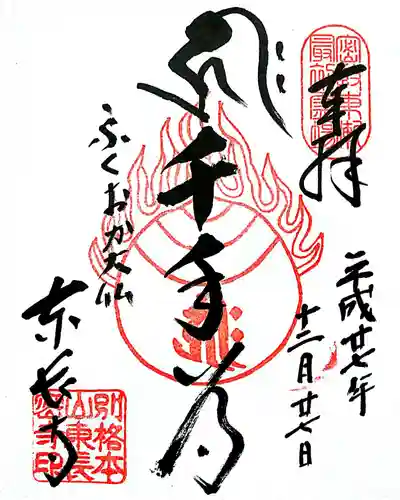 密教東漸
最初霊場
奉拝
平成廿七年
十二月廿七日
千手
ふくおか大仏
東長寺
別格本
山東長
密寺印